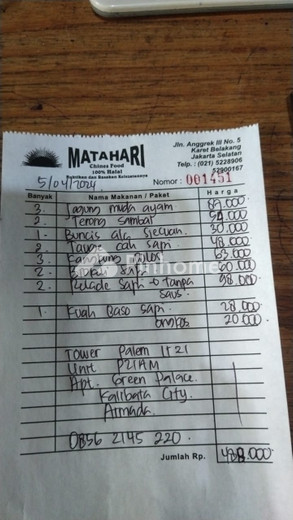 MATAHARI
Chines Food
100% Halal
Buktikan dan Rasakan Kelezatannya
Jln. Anggrek III No. 5
Karet Belakang
Jakarta Selatan
Telp. : (021) 5228906
52900167
5/04/2024
Nomor : 001451
Banyak Nama Makanan / Paket Harga
3. Jagung muda ayam
3. Terong sambal 54.000
1. Buncis ala Siecuan. 30.000
2 Tauge cah sapi 48.000
3. 63.000
2. 60.000
2. Kolade Sapi tanpa 98.000
saus.
1. Kuah Baso Sapi. 28.000
ongkos 20.000
Tower Palem lt 21
Unit P21AM
Apt. Green Palace.
Kalibata City.
Armada.
0856 2145 220.
Jumlah Rp.